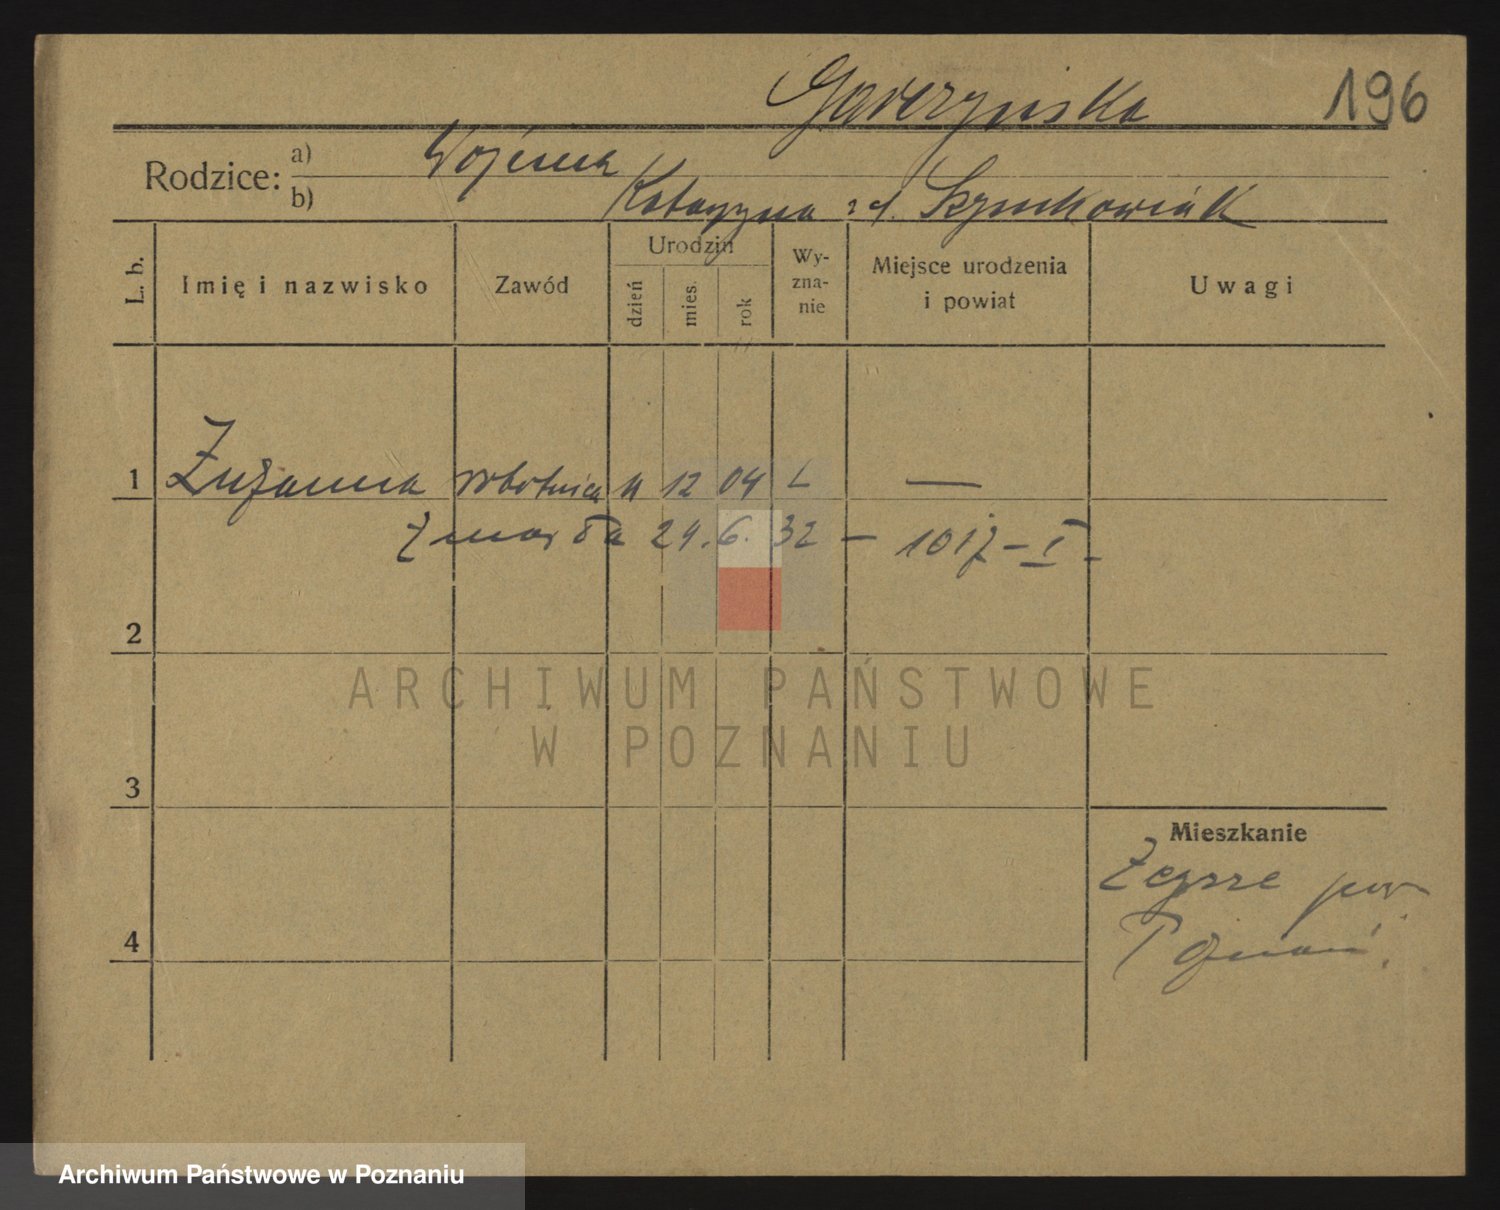 Garczyńska 196
Rodzice: a) Wojciech
b) Katarzyna z d. Szymkowiak
L. b. Imię i nazwisko Zawód Urodzin dzień mies. rok Wy-zna-nie Miejsce urodzenia i powiat Uwagi
1 Zuzanna robotnica 11 12 04 L —
Zmarła 24.6.32 — 1017 - I -
2
3
Mieszkanie
Zegrze pow
4 Poznań.
ARCHIWUM PAŃSTWOWE
W POZNANIU
Archiwum Państwowe w Poznaniu